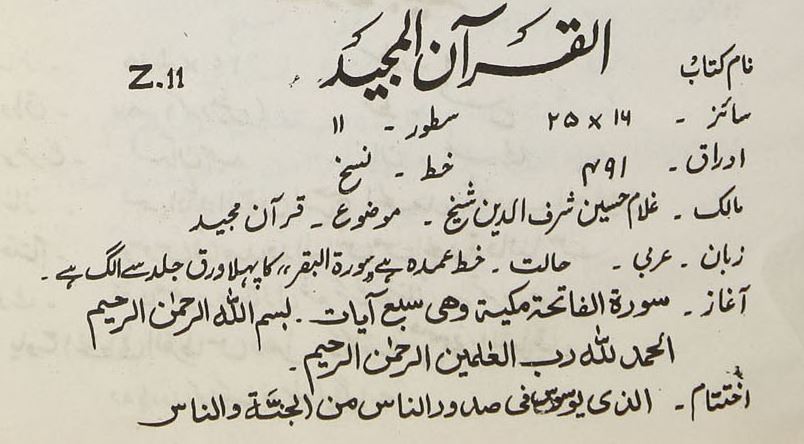 نام کتاب القرآن المجید Z.11
سائز ۔ ۱۶ × ۲۵ سطور ۔ ۱۱
اوراق ۔ ۴۹۱ خط ۔ نسخ
مالک ۔ غلام حسین شرف الدین شیخ ۔ موضوع ۔ قرآن مجید
زبان ۔ عربی ۔ حالت ۔ خط عمدہ ہے، سورۃ البقر،، کا پہلا ورق جلد سے الگ ہے ۔
آغاز ۔ سورة الفاتحة مكية وهى سبع آيات ۔ بسم الله الرحمن الرحيم
الحمد لله رب العلمين الرحمن الرحيم ۔
اختتام ۔ الذى يوسوس فى صدور الناس من الجنّة والناس